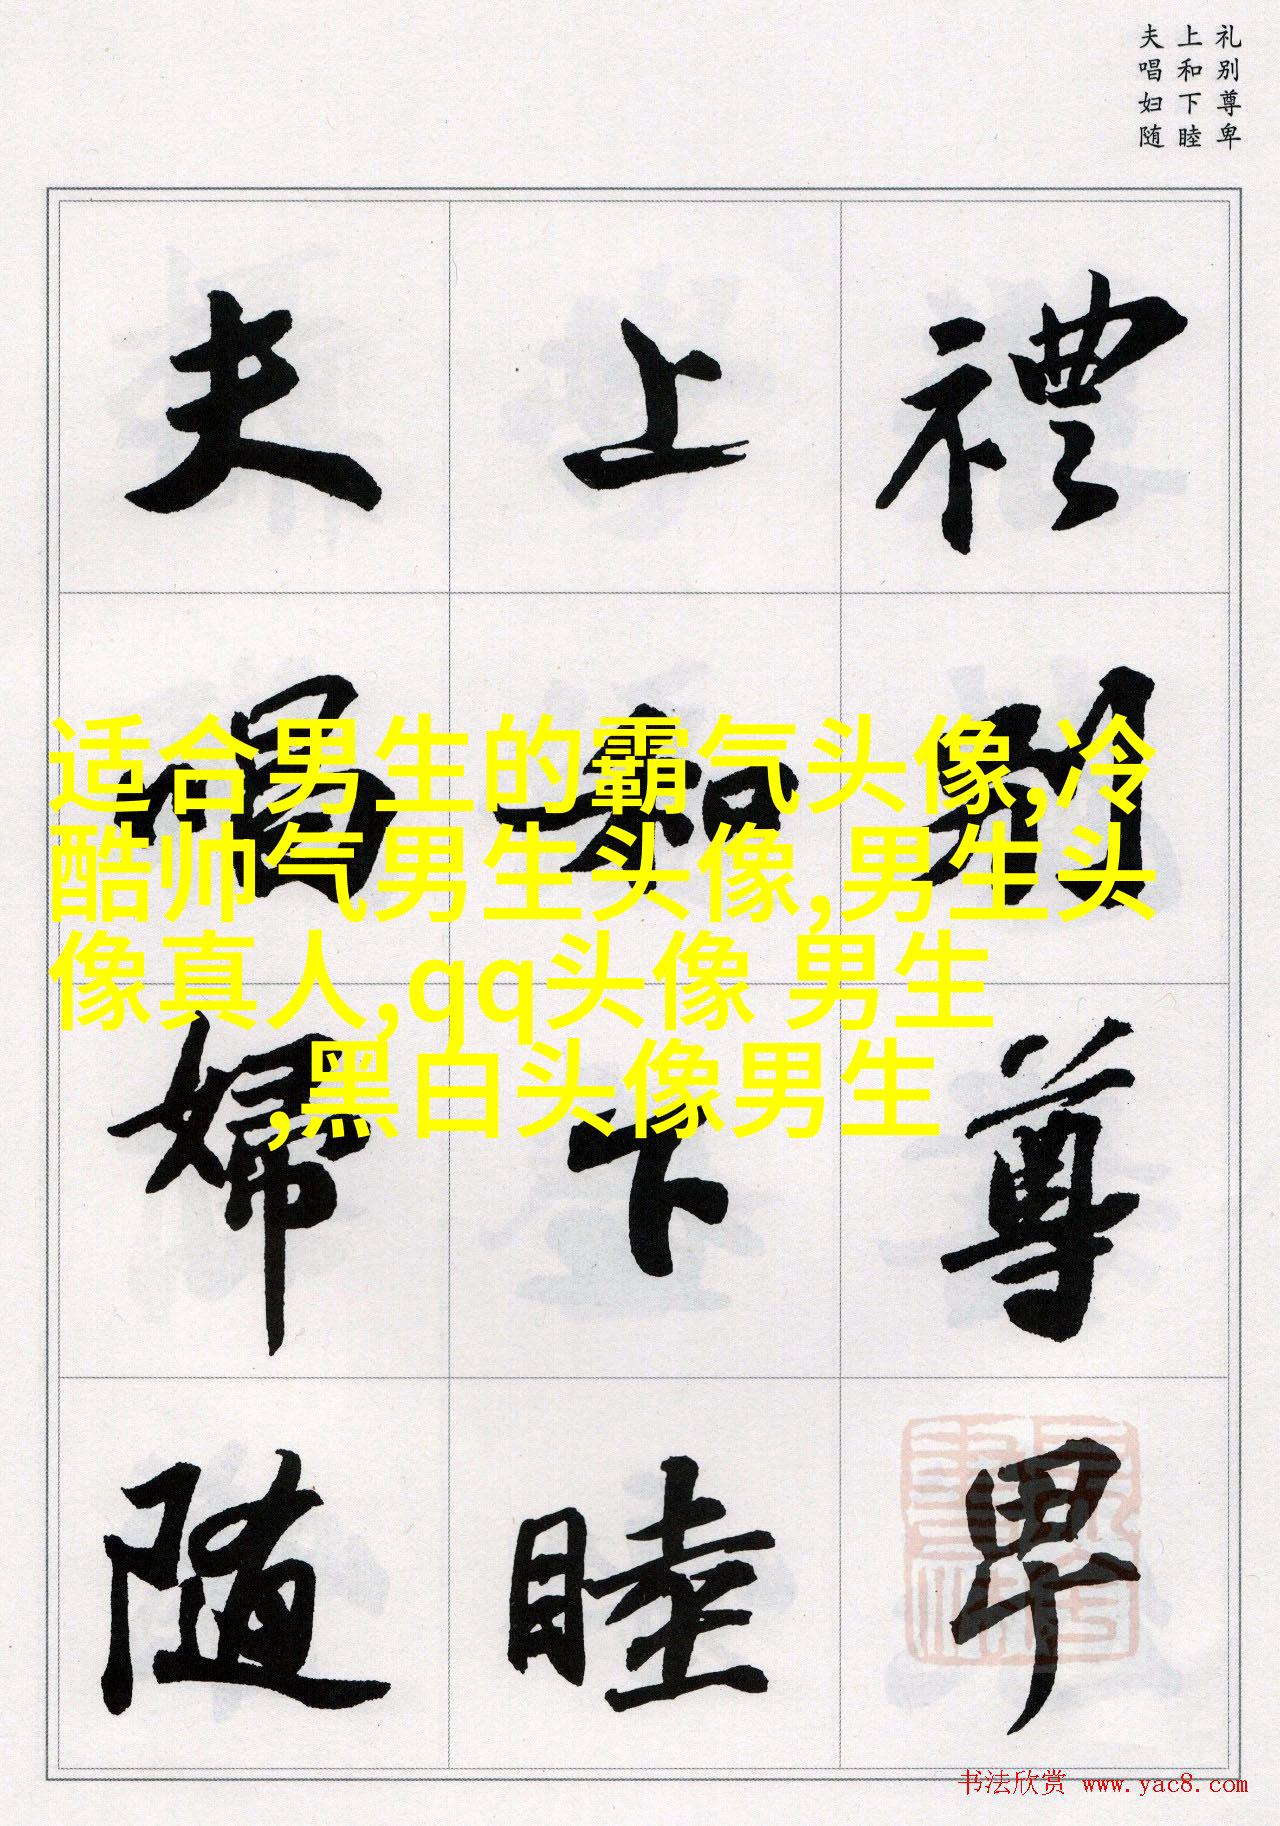 礼别尊卑
上和下睦
夫唱妇随
禮別尊卑
上和下睦
夫唱婦随
适合男生的霸气头像,冷
酷帅气男生头像,男生头
像真人,qq头像 男生
,黑白头像男生
书法欣赏 www.yac8.com